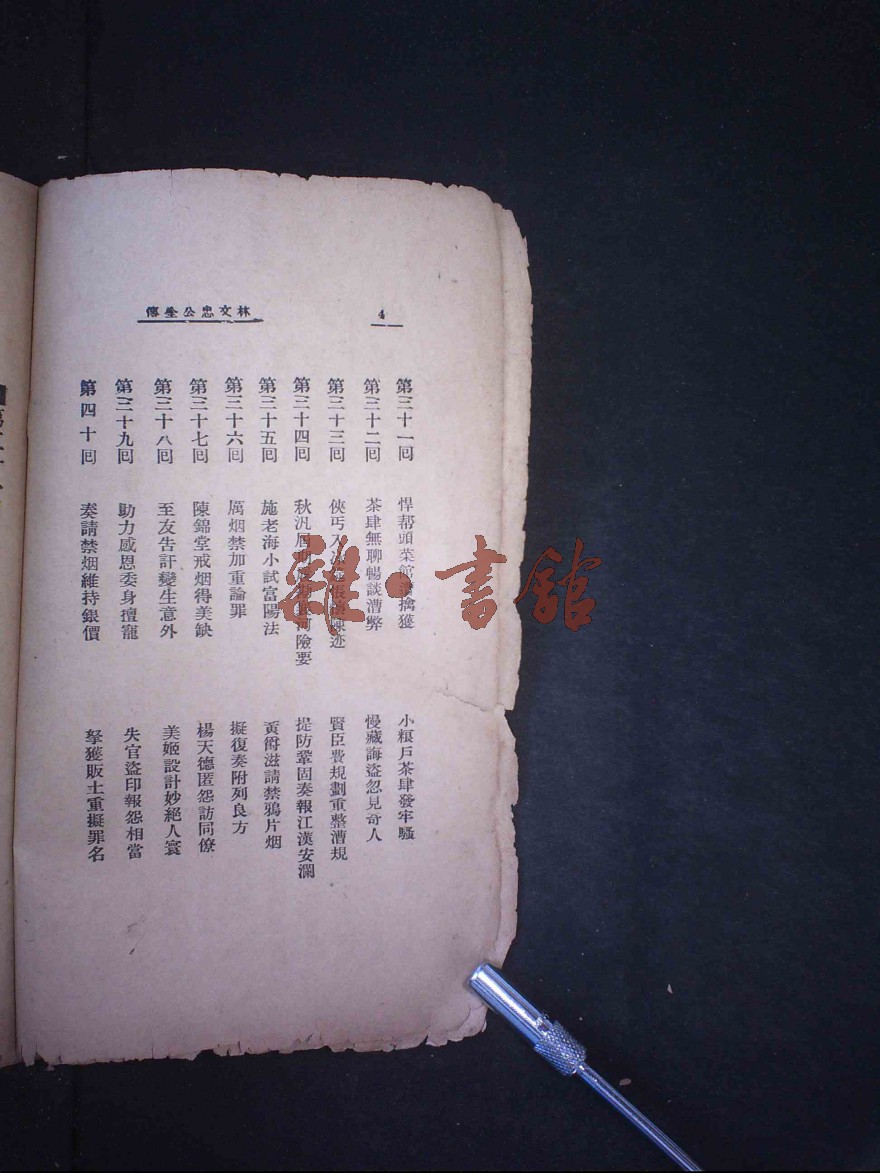 林文忠公全傳
4
第三十一回 悍帮頭菜館 擒獲 小糧戶茶肆發牢騷
第三十二回 茶肆無聊暢談漕弊 慢藏誨盜忽見奇人
第三十三回 俠丐 迹 賢臣費規劃重整漕規
第三十四回 秋汛 河險要 提防鞏固奏報江漢安瀾
第三十五回 施老海小試富陽法 黃爵滋請禁鴉片烟
第三十六回 厲烟禁加重論罪 擬復奏附列良方
第三十七回 陳錦堂戒烟得美缺 楊天德匿怨訪同僚
第三十八回 至友告訐變生意外 美姬設計妙絕人寰
第三十九回 助力感恩委身擅寵 失官盜印報怨相當
第四十回 奏請禁烟維持銀價 拏獲販土重擬罪名
雜 書館